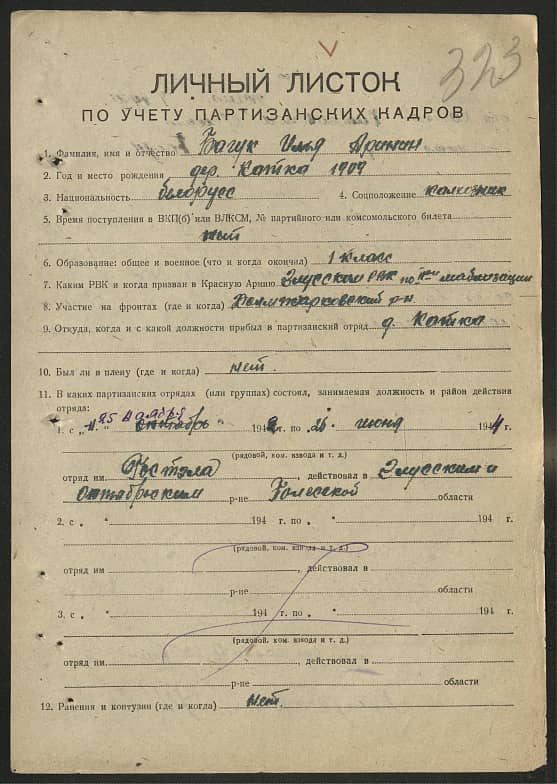 323
ЛИЧНЫЙ ЛИСТОК
ПО УЧЕТУ ПАРТИЗАНСКИХ КАДРОВ
1. Фамилия, имя и отчество Багук Илья
2. Год и место рождения дер. Катка 1909
3. Национальность белорусс 4. Соцположение колхозник
5. Время поступления в ВКП(б) или ВЛКСМ, № партийного или комсомольского билета
нет
6. Образование: общее и военное (что и когда окончил) 1 класс
7. Каким РВК и когда призван в Красную Армию Глусском РВК по
8. Участие на фронтах (где и когда) р-н
9. Откуда, когда и с какой должности прибыл в партизанский отряд д. Катка
10. Был ли в плену (где и когда) нет.
11. В каких партизанских отрядах (или группах) состоял, занимаемая должность и район действия
отряда:
25 декабря
1. с „ “ 1942 г. по „26“ июня 1944 г.
(рядовой, ком. взвода и т. д.)
отряд им Гостэла, действовал в Глусским и
октябрьским р-не Полесской области
2. с „ “ 194 г. по „ “ 194 г.
(рядовой, ком. взвода и т. д.)
отряд им , действовал в
р-не области
3. с „ “ 194 г. по „ “ 194 г.
(рядовой, ком. взвода и т. д.)
отряд им , действовал в
р-не области
12. Ранения и контузии (где и когда) нет.